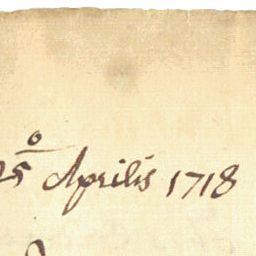 25º Aprilis 1718